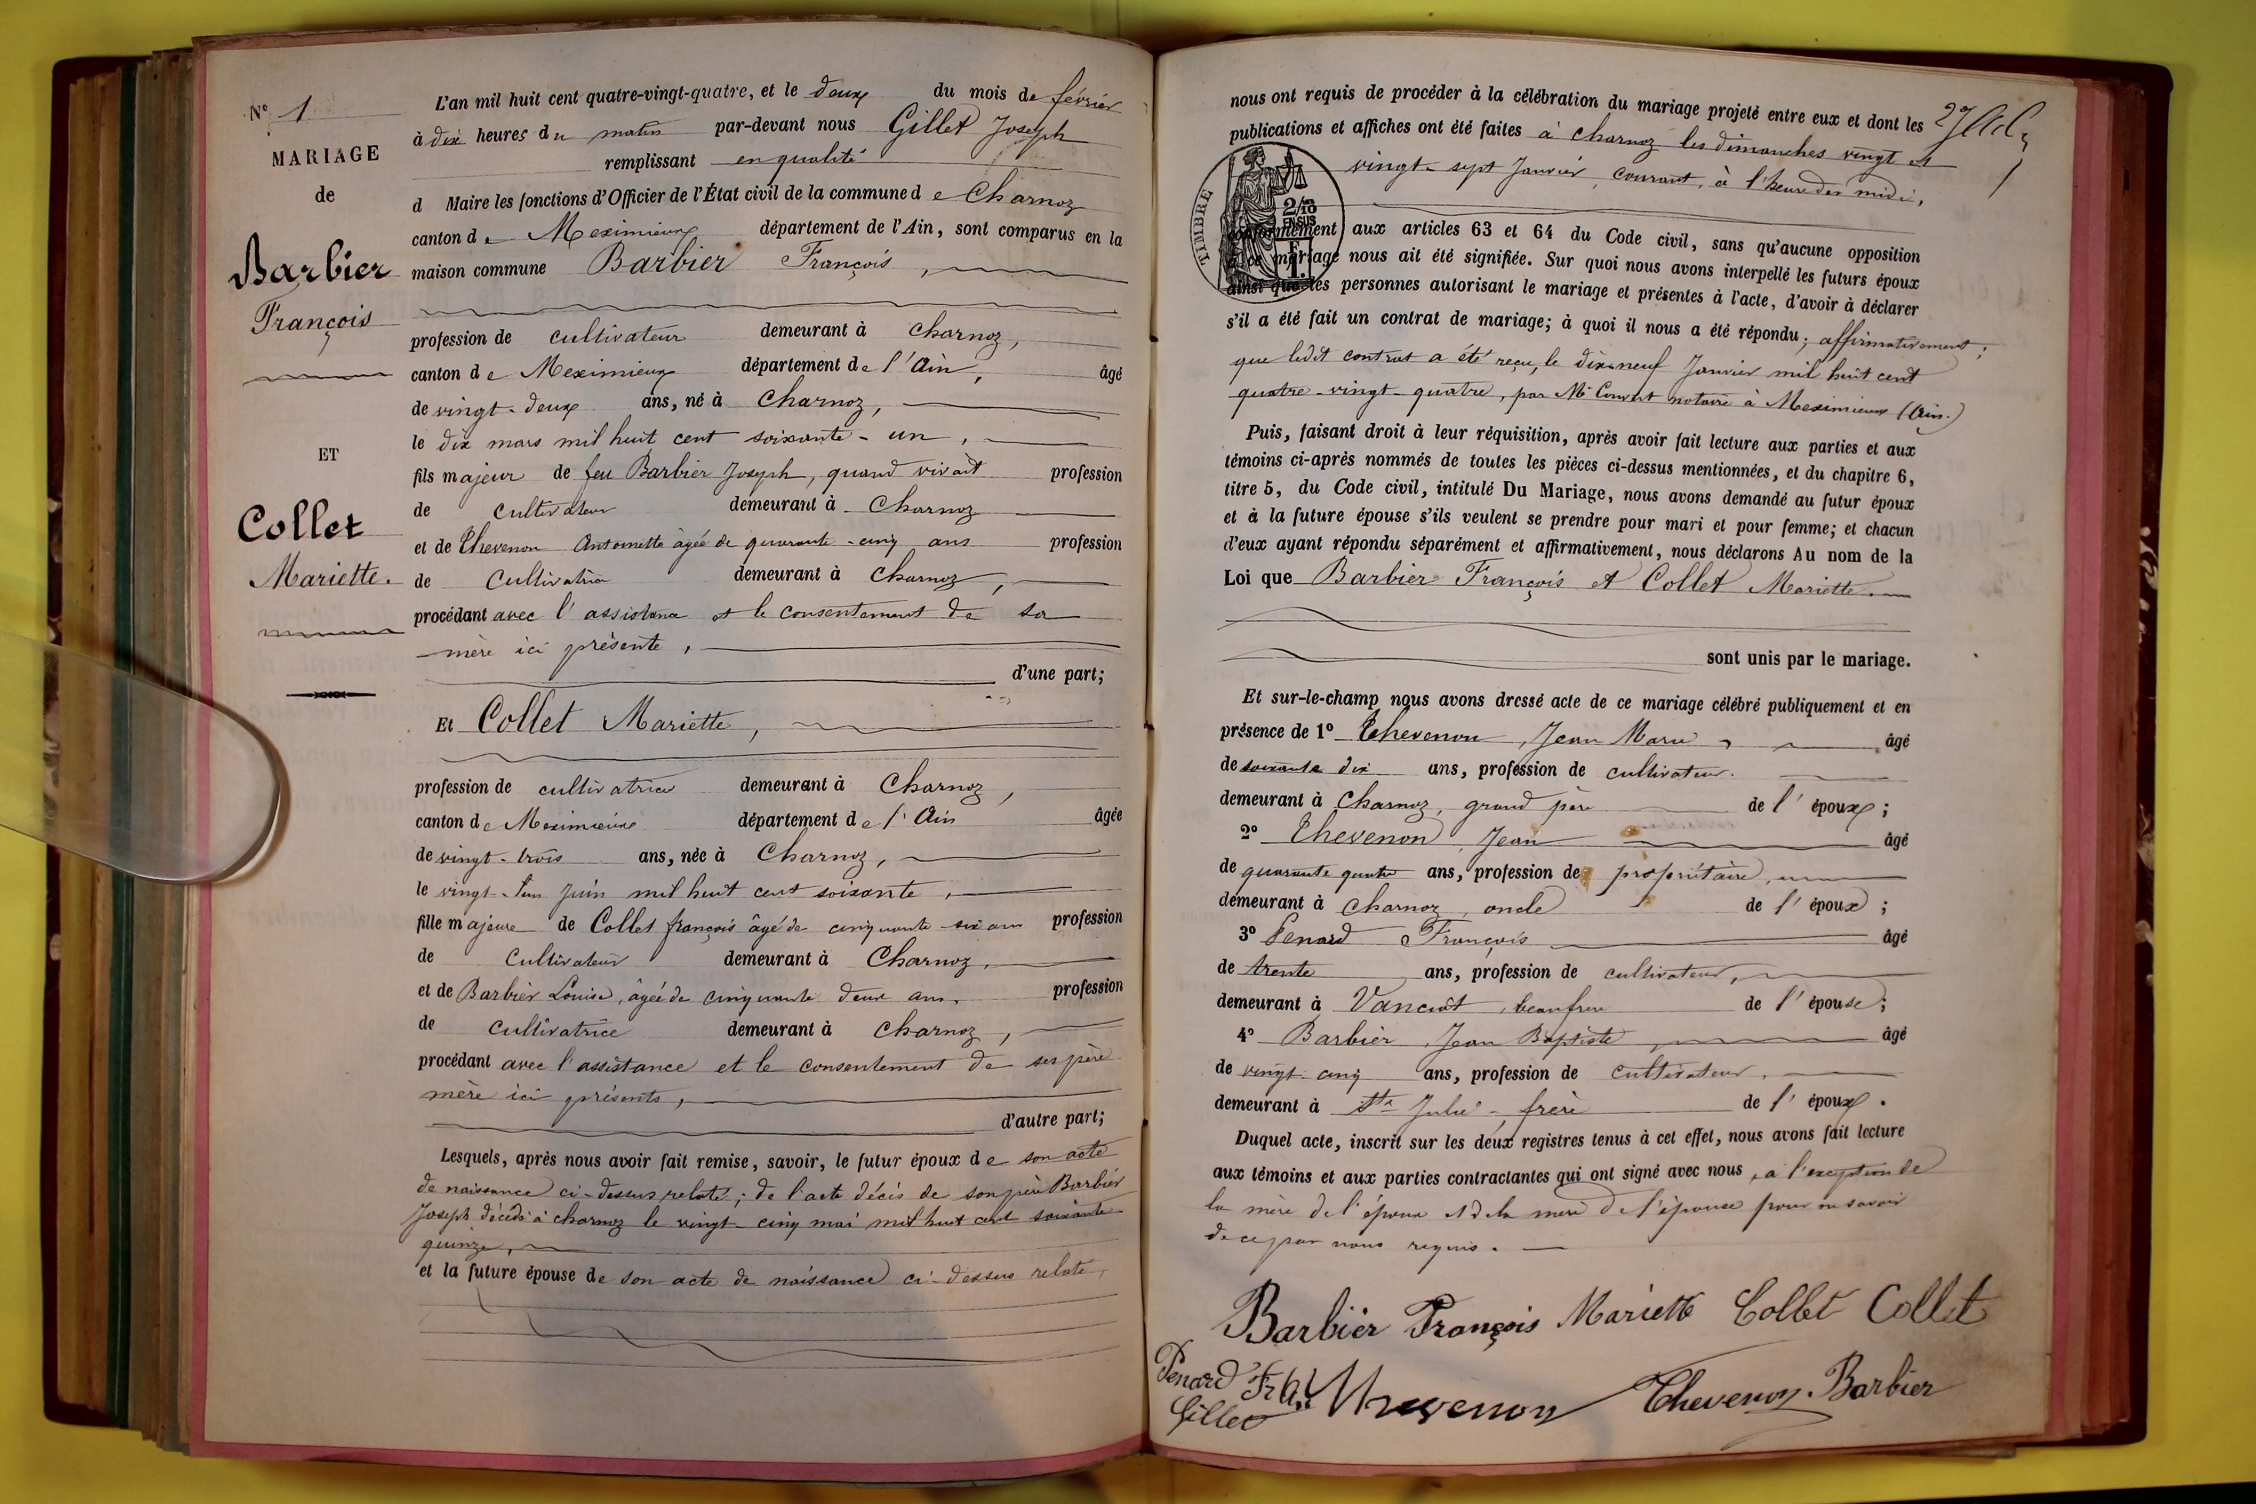 N° 1
MARIAGE
de
Barbier
François
ET
Collet
Mariette.
L'an mil huit cent quatre-vingt-quatre, et le deux du mois de février
à dix heures du matin par-devant nous Gillet Joseph
remplissant en qualité
d Maire les fonctions d'Officier de l'État civil de la commune de Charnoz
canton de Meximieux département de l'Ain, sont comparus en la
maison commune Barbier François,
profession de cultivateur demeurant à Charnoz,
canton de Meximieux département de l'Ain, âgé
de vingt-deux ans, né à Charnoz,
le dix mars mil huit cent soixante-un,
fils majeur de feu Barbier Joseph, quand vivait profession
de cultivateur demeurant à Charnoz
et de Thevenon Antoinette âgée de quarante-cinq ans profession
de cultivatrice demeurant à Charnoz,
procédant avec l'assistance et le consentement de sa
mère ici présente,
d'une part;
Et Collet Mariette,
profession de cultivatrice demeurant à Charnoz,
canton de Meximieux département de l'Ain âgée
de vingt-trois ans, née à Charnoz,
le vingt-un juin mil huit cent soixante,
fille majeure de Collet françois âgé de cinquante-six ans profession
de cultivateur demeurant à Charnoz,
et de Barbier Louise, âgée de cinquante deux ans, profession
de cultivatrice demeurant à Charnoz,
procédant avec l'assistance et le consentement de ses père
mère ici présents,
d'autre part;
Lesquels, après nous avoir fait remise, savoir, le futur époux de son acte
de naissance ci-dessus relaté; de l'acte décès de son père Barbier
Joseph décédé à charnoz le vingt-cinq mai mil huit cent soixante
quinze,
et la future épouse de son acte de naissance ci-dessus relaté,
nous ont requis de procéder à la célébration du mariage projeté entre eux et dont les
publications et affiches ont été faites à charnoz les dimanches vingt et
vingt-sept Janvier, courant, à l'heure de midi,
TIMBRE
2/10
EN SUS
conformément aux articles 63 et 64 du Code civil, sans qu'aucune opposition
à ce mariage nous ait été signifiée. Sur quoi nous avons interpellé les futurs époux
ainsi que les personnes autorisant le mariage et présentes à l'acte, d'avoir à déclarer
s'il a été fait un contrat de mariage; à quoi il nous a été répondu; affirmativement;
que ledit contrat a été reçu, le dix-neuf Janvier mil huit cent
quatre-vingt-quatre, par Me Convert notaire à Meximieux (Ain.)
Puis, faisant droit à leur réquisition, après avoir fait lecture aux parties et aux
témoins ci-après nommés de toutes les pièces ci-dessus mentionnées, et du chapitre 6,
titre 5, du Code civil, intitulé Du Mariage, nous avons demandé au futur époux
et à la future épouse s'ils veulent se prendre pour mari et pour femme; et chacun
d'eux ayant répondu séparément et affirmativement, nous déclarons Au nom de la
Loi que Barbier François et Collet Mariette.
sont unis par le mariage.
Et sur-le-champ nous avons dressé acte de ce mariage célébré publiquement et en
présence de 1° Thevenon, Jean Marie, âgé
de soixante dix ans, profession de cultivateur.
demeurant à Charnoz, grand père de l'époux;
2° Thevenon, Jean âgé
de quarante quatre ans, profession de propriétaire,
demeurant à Charnoz, oncle de l'époux;
3° Penard François âgé
de trente ans, profession de cultivateur,
demeurant à Vanciat, beaufrere de l'épouse;
4° Barbier, Jean Baptiste, âgé
de vingt-cinq ans, profession de cultivateur,
demeurant à Ste Julie, frère de l'époux.
Duquel acte, inscrit sur les deux registres tenus à cet effet, nous avons fait lecture
aux témoins et aux parties contractantes qui ont signé avec nous, à l'exception de
la mère de l'époux et de la mère de l'épouse pour ne savoir
de ce par nous requis.
Barbier François Mariette Collet Collet
Penard Thevenon Thevenon Barbier
Gillet